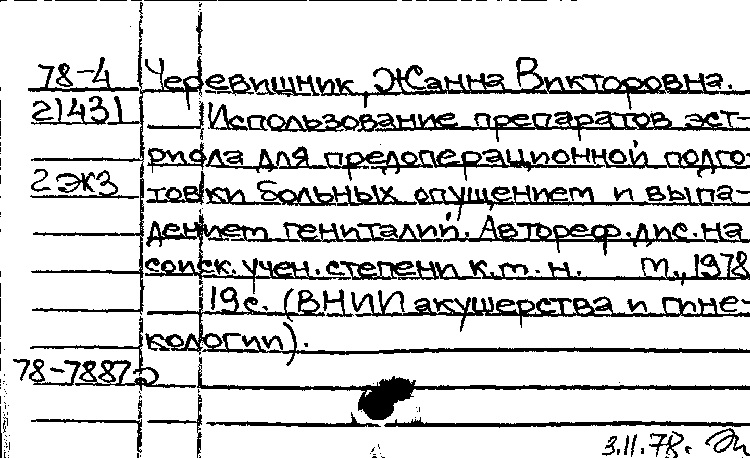 78-4 Черевишник, Жанна Викторовна.
21431 Использование препаратов эст-
риола для предоперационной подго-
2 экз товки больных опущением и выпа-
дением гениталий. Автореф. дис. на
соиск. учен. степени к.м.н. М., 1978
19с. (ВНИИ акушерства и гине-
кологии).
78-7887
3.11.78.